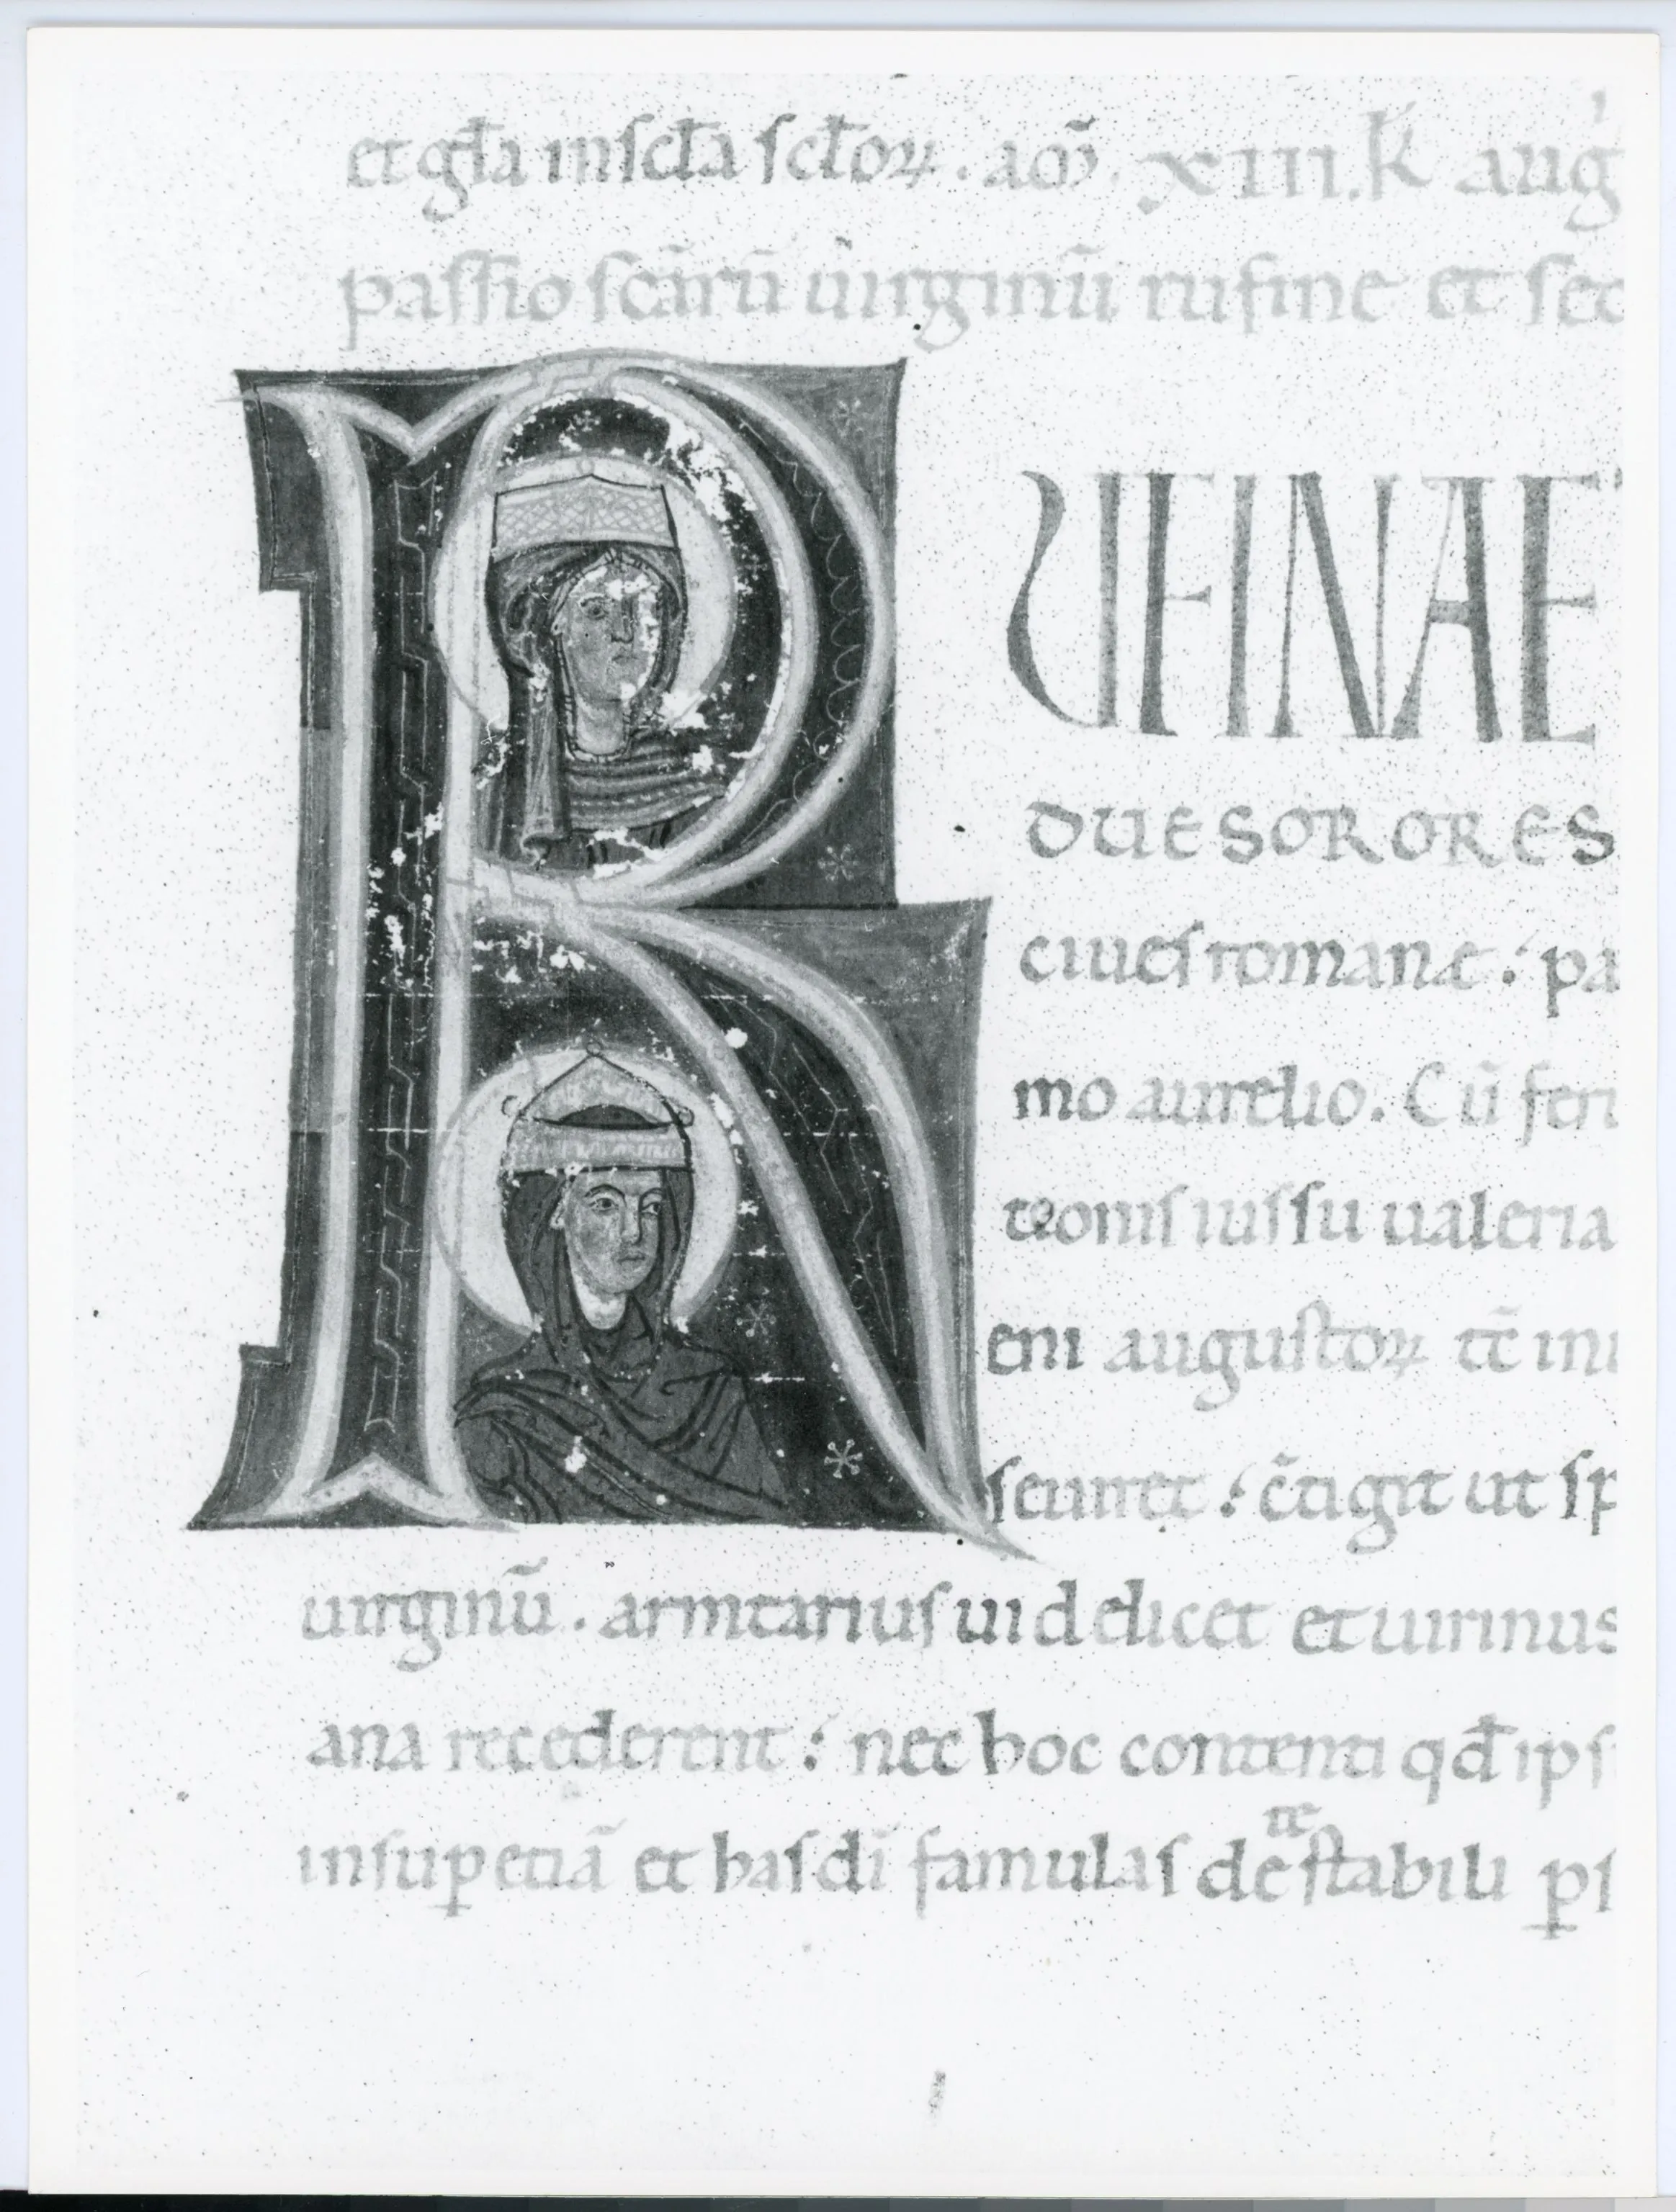 et gl̄a in scl̄a sclōꝝ. am̄. XIII. K̄ auḡ
passio scārū uirginū rufine et sec
RUFINAE
DUE SORORES
ciues romanæ: pa
mo aurelio. Cū feri
teonis iussu ualeria
eni augustoꝝ
seuiret: c̄tigit ut sp
uirginū. armtarius uidelicet et uirinus
ana recederent: nec hoc contenti qd̄ ips
insup etiā et has dī famulas detestabili ꝑs